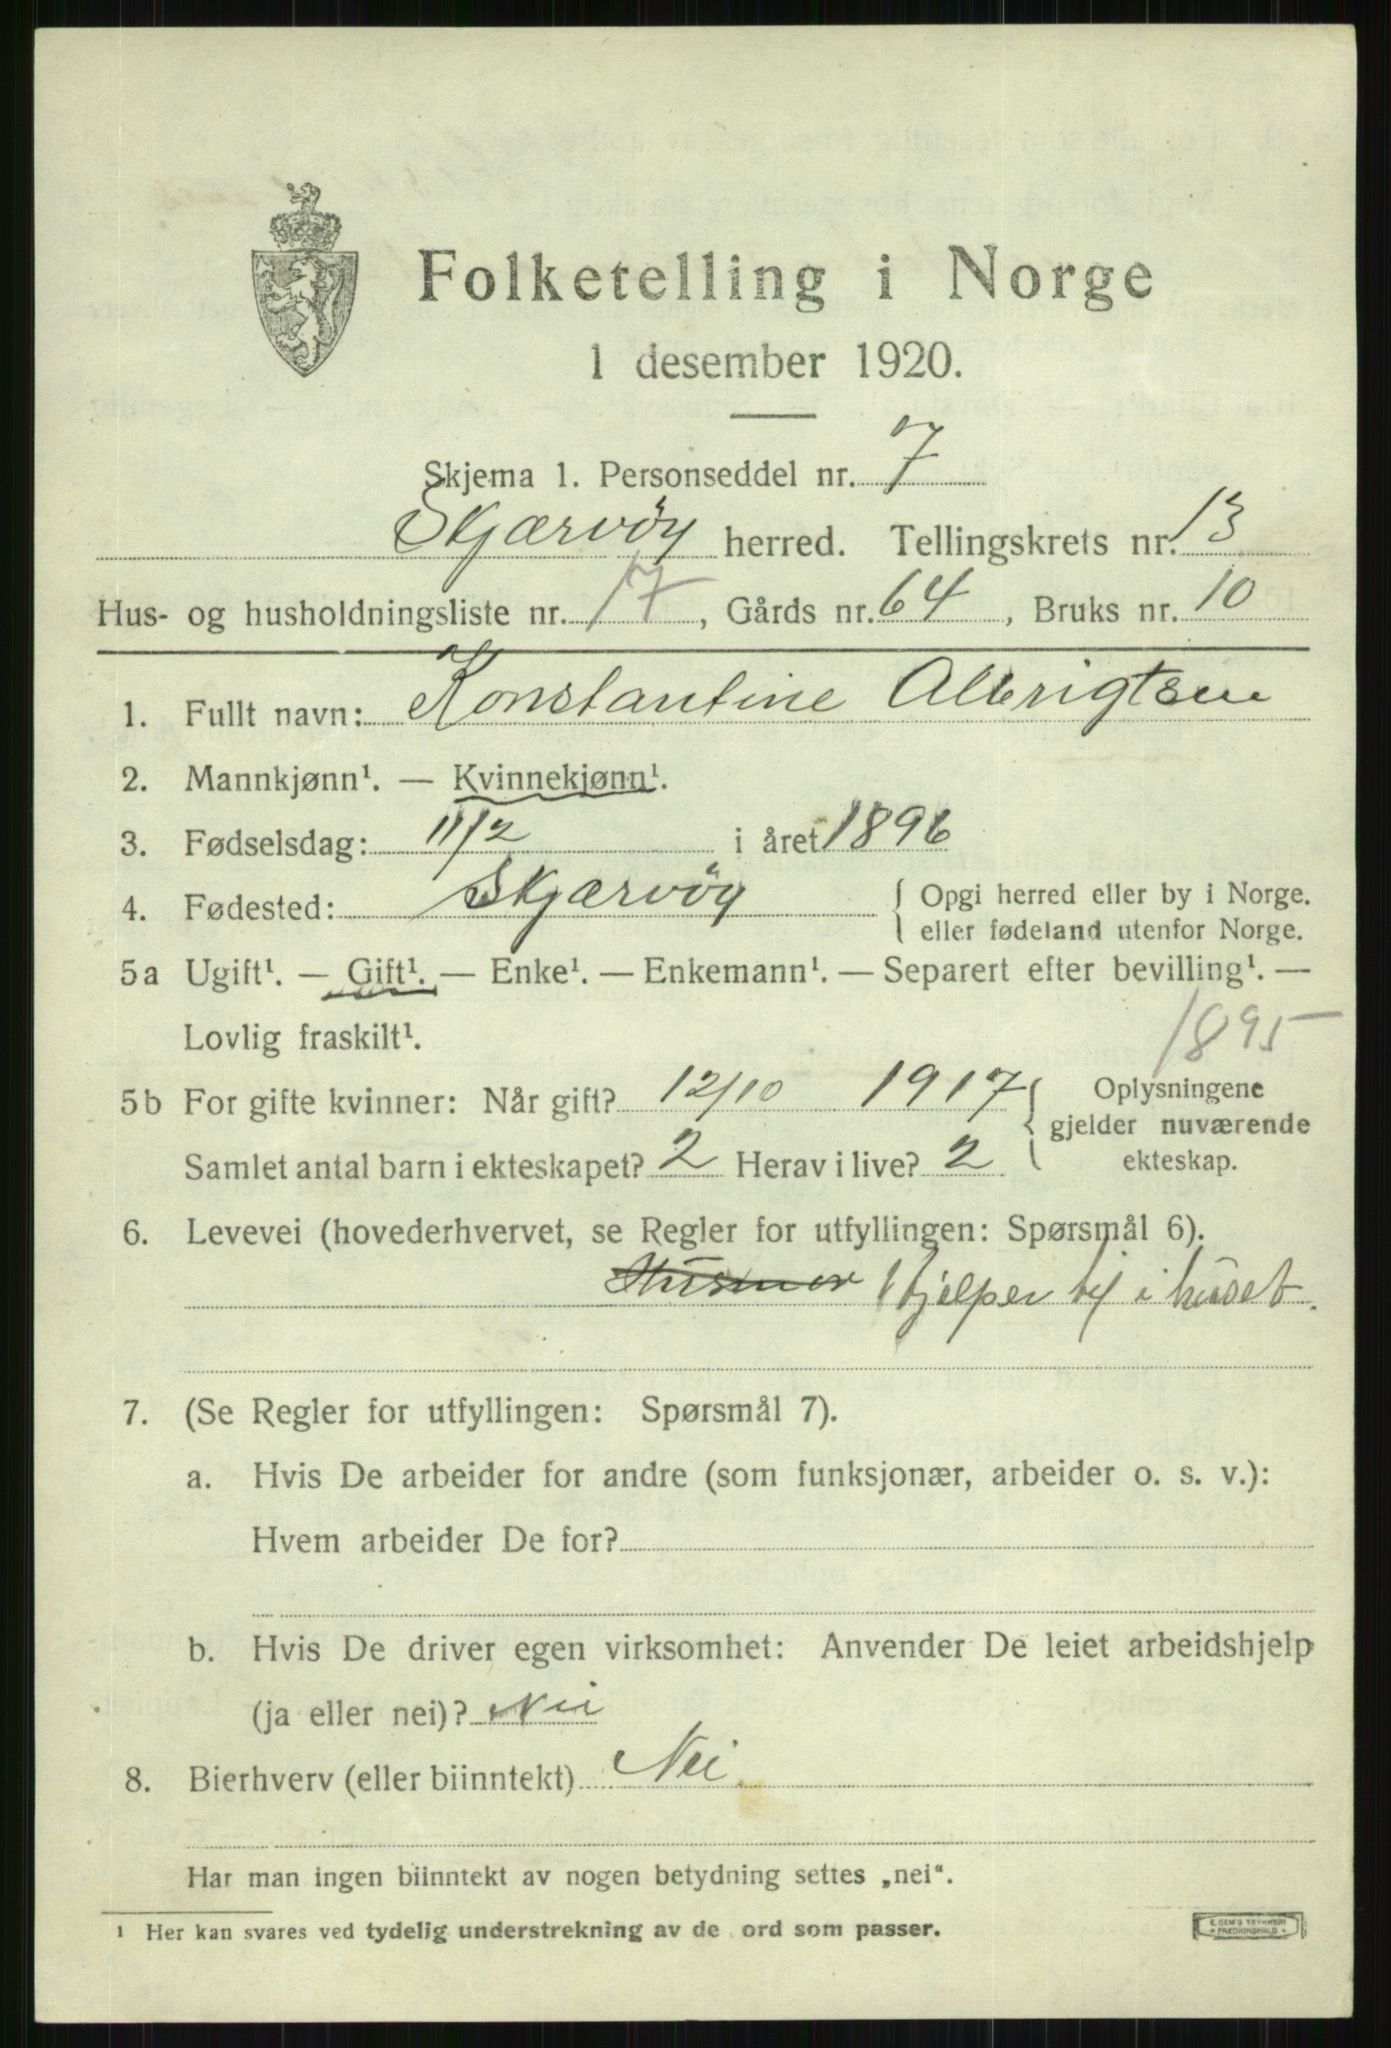 Folketelling i Norge
1 desember 1920.
Skjema 1. Personseddel nr. 7
Skjærvöy herred. Tellingskrets nr. 13
Hus- og husholdningsliste nr. 17, Gårds nr. 64, Bruks nr. 10
1. Fullt navn: Konstantine Albrigtsen
2. Mannkjønn¹. — Kvinnekjønn¹.
3. Fødselsdag: 11/2 i året 1896
4. Fødested: Skjærvöy { Opgi herred eller by i Norge.
eller fødeland utenfor Norge.
5a Ugift¹. — Gift¹. — Enke¹. — Enkemann¹. — Separert efter bevilling¹. —
Lovlig fraskilt¹.
1895
5b For gifte kvinner: Når gift? 12/10 1917 { Oplysningene
gjelder nuværende
Samlet antal barn i ekteskapet? 2 Herav i live? 2
ekteskap.
6. Levevei (hovederhvervet, se Regler for utfyllingen: Spørsmål 6).
Husmor Hjelper til i huset.
7. (Se Regler for utfyllingen: Spørsmål 7).
a. Hvis De arbeider for andre (som funksjonær, arbeider o. s. v.):
Hvem arbeider De for?
b. Hvis De driver egen virksomhet: Anvender De leiet arbeidshjelp
(ja eller nei)? Nei
8. Bierhverv (eller biinntekt) Nei
Har man ingen biinntekt av nogen betydning settes „nei“.
¹ Her kan svares ved tydelig understrekning av de ord som passer.
E. SEM'S TRYKKERI
FREDRIKSHALD